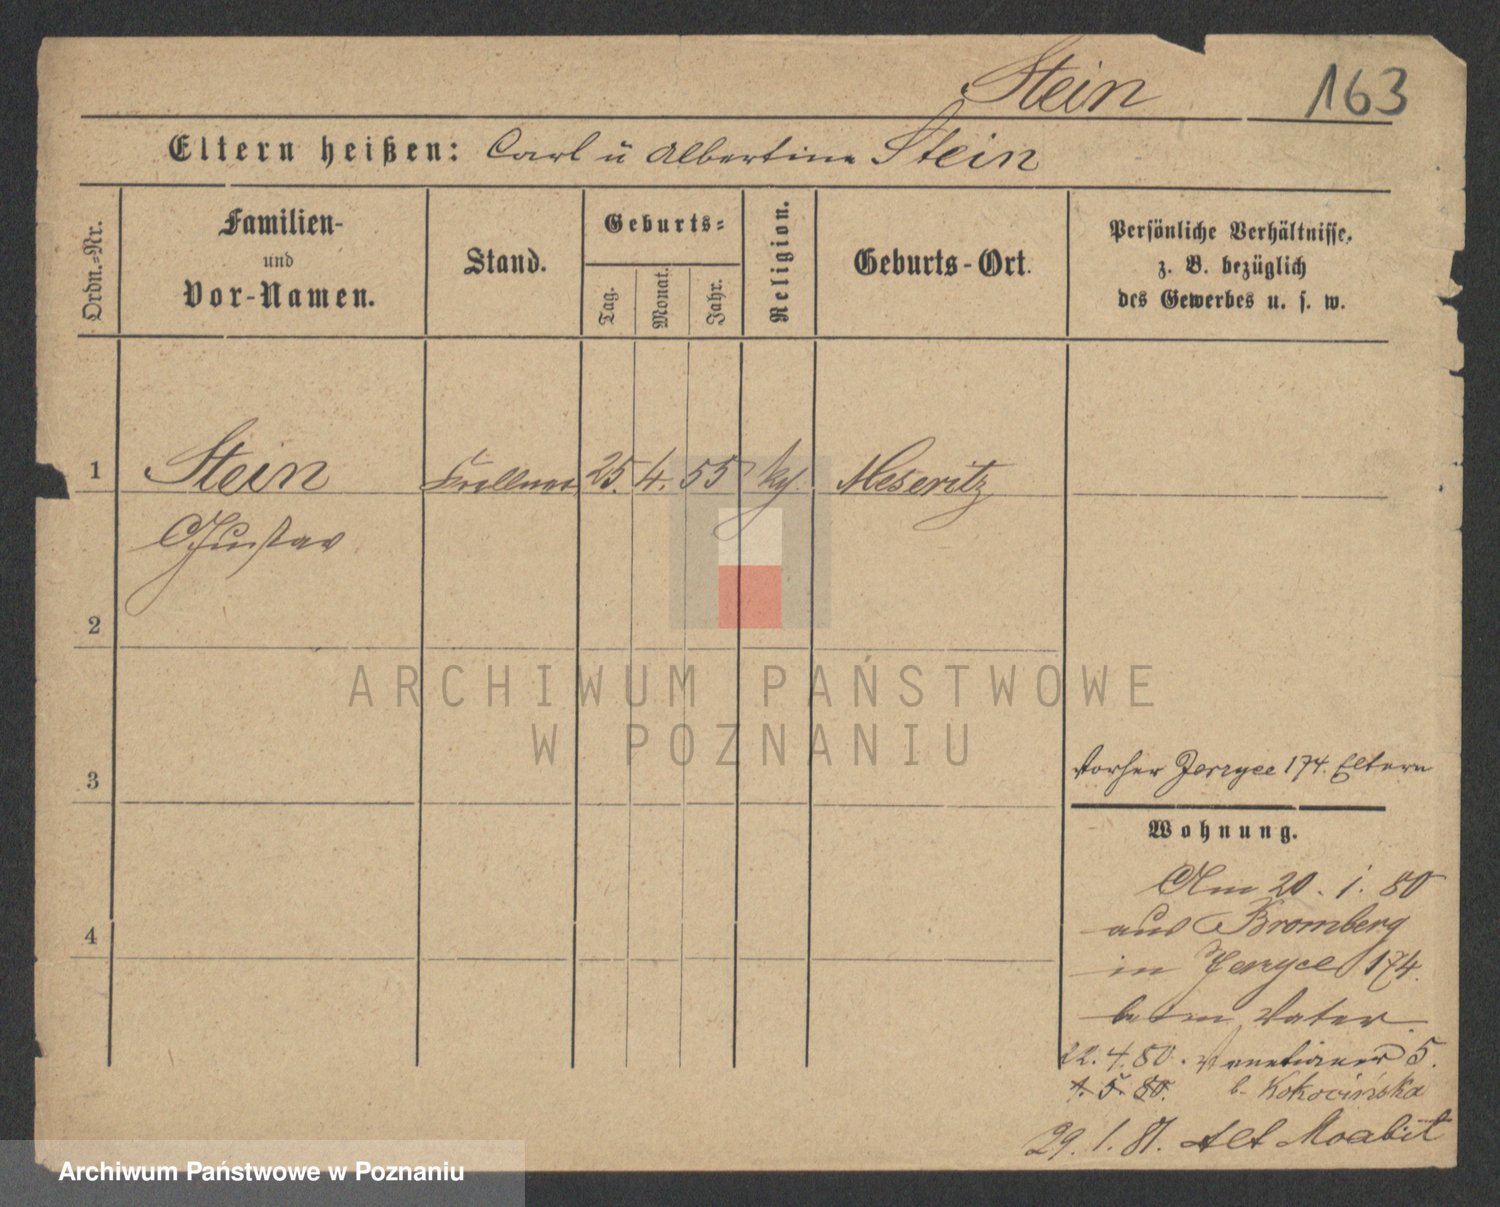 Stein 163
Eltern heißen: Carl u Albertine Stein
Ordn.-Nr.
Familien-
und
Vor-Namen.
Stand.
Geburts-
Tag.
Monat.
Jahr.
Religion.
Geburts-Ort.
Persönliche Verhältnisse,
z. B. bezüglich
des Gewerbes u. s. w.
1 Stein Kellner 25. 4. 55 kg. Meseritz
Gustav
2
3
4
Vorher Jerzyce 174. Eltern
Wohnung.
Am 20. 1. 80
aus Bromberg
in Jerzyce 174.
beim Vater
22. 4. 80. Venetianer 5.
1. 5. 80. b. Kokocińska
29. 1. 81. Alt Moabit
ARCHIWUM PAŃSTWOWE
W POZNANIU
Archiwum Państwowe w Poznaniu